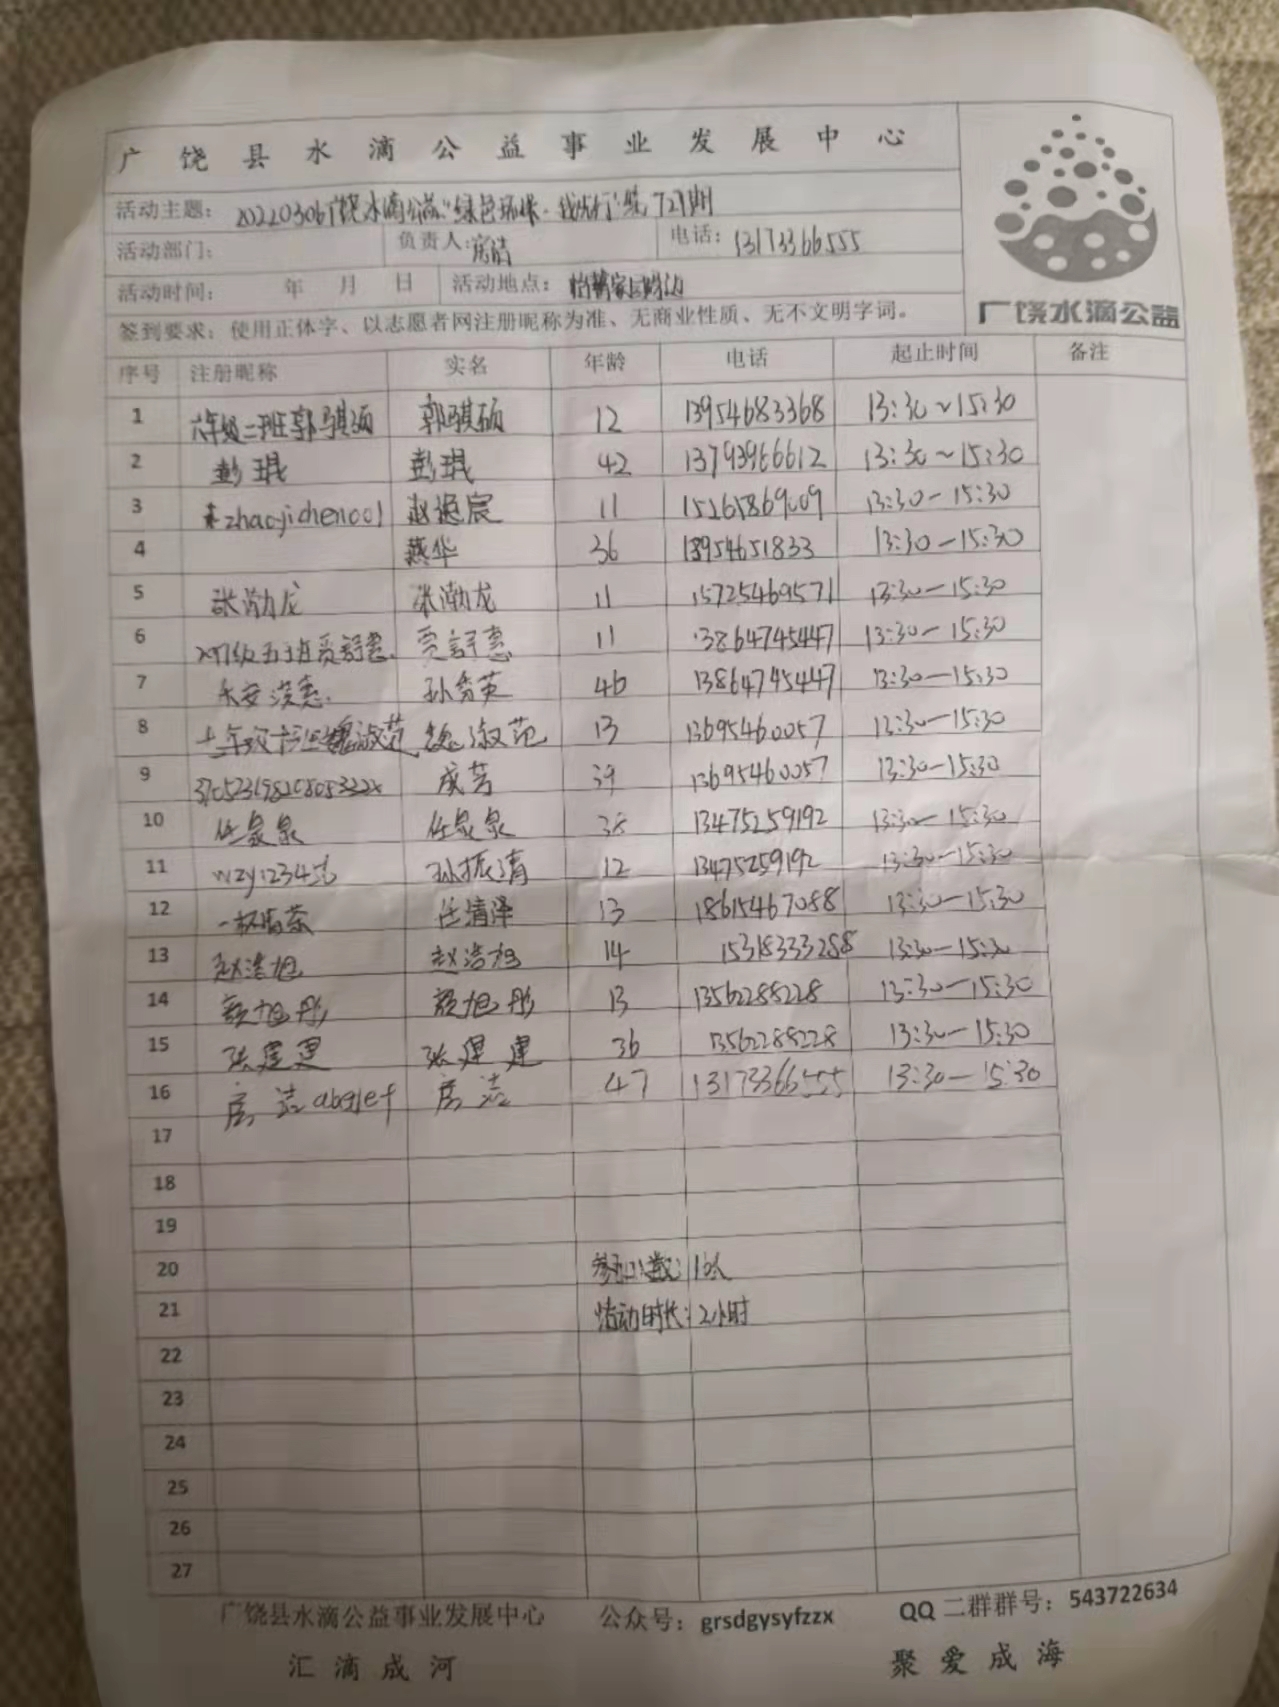 广饶县水滴公益事业发展中心
活动主题：20220306广饶水滴公益“绿色环保·我先行”第727期
活动部门： 负责人：房洁 电话：13173366555
活动时间： 年 月 日 活动地点：
签到要求：使用正体字、以志愿者网注册昵称为准、无商业性质、无不文明字词。
广饶水滴公益
序号 注册昵称 实名 年龄 电话 起止时间 备注
1 六年级二班郭骐硕 郭骐硕 12 13954683368 13:30～15:30
2 彭琨 彭琨 42 13793966612 13:30～15:30
3 zhaoyichen001 赵逸宸 11 15261869009 13:30-15:30
4 燕华 36 18954651833 13:30-15:30
5 张渤龙 张渤龙 11 15725469571 13:30-15:30
6 贾舒惠 贾舒惠 11 13864745447 13:30-15:30
7 孙秀英 46 13864745447 13:30-15:30
8 魏淑范 魏淑范 13 13695460057 13:30-15:30
9 成芳 39 13695460057 13:30-15:30
10 任泉泉 任泉泉 38 13475259192 13:30-15:30
11 wzy123456 孙振清 12 13475259192 13:30-15:30
12 一杯清茶 任清泽 13 18615467088 13:30-15:30
13 赵浩旭 赵浩旭 14 15318333288 13:30-15:30
14 颜旭彤 颜旭彤 13 13562288228 13:30-15:30
15 张建建 张建建 36 13562288228 13:30-15:30
16 房洁 房洁 47 13173366555 13:30-15:30
17
18
19
20 参加人数：16人
21 活动时长：2小时
22
23
24
25
26
27
广饶县水滴公益事业发展中心 公众号：grsdgysyfzzx QQ二群群号：543722634
汇滴成河 聚爱成海